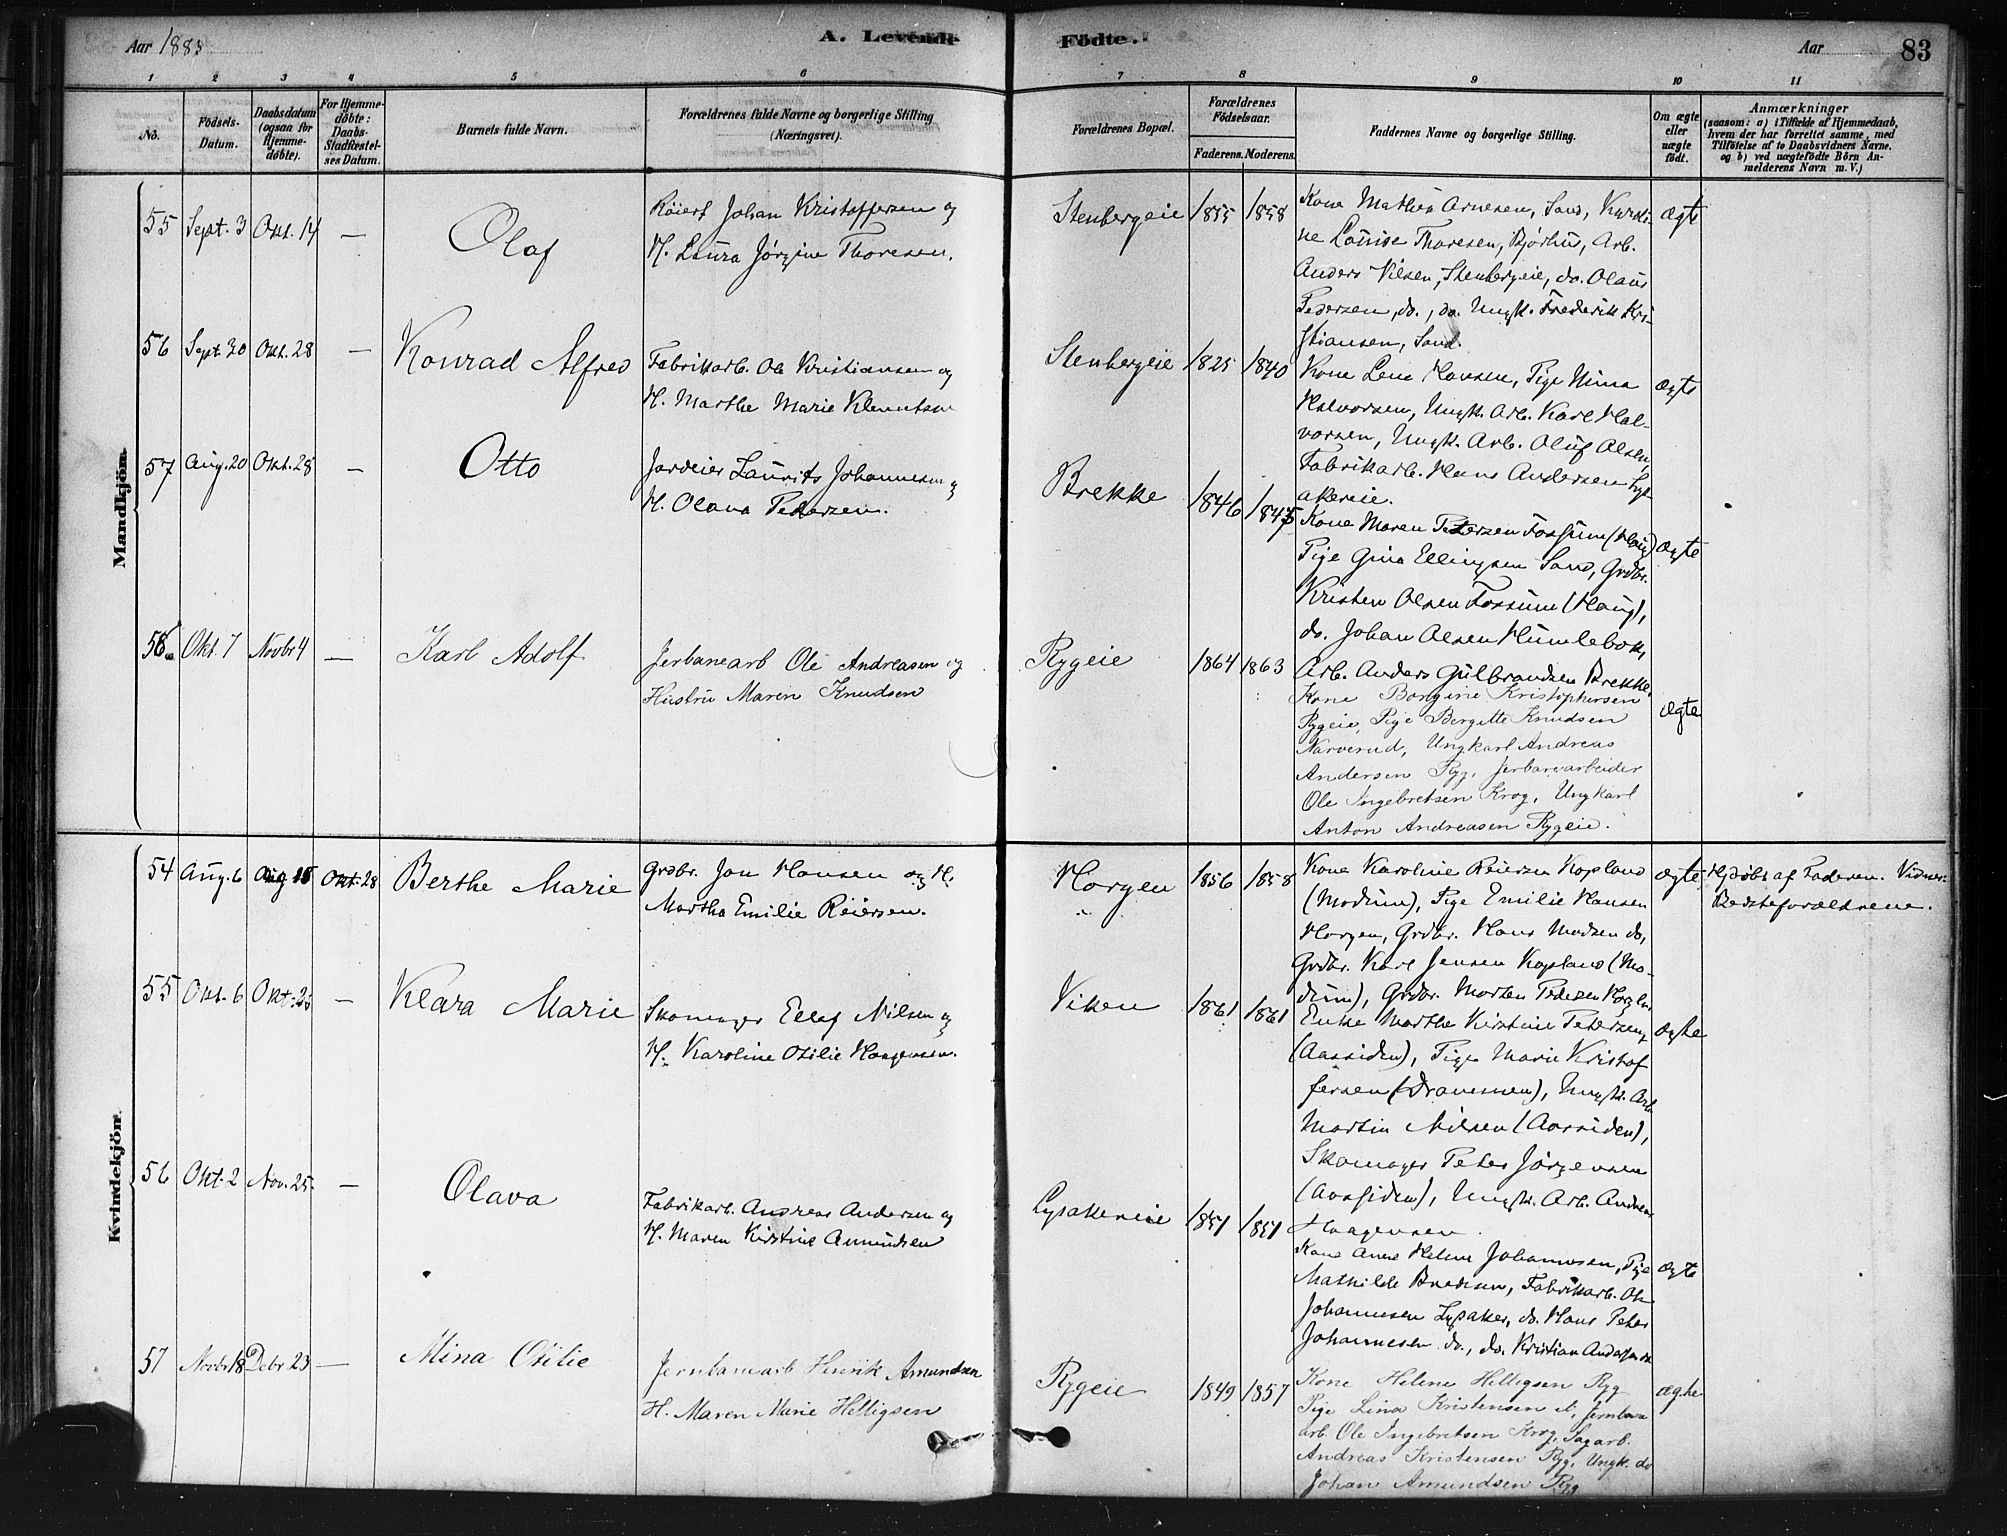 Aar 1883
A. Levende
Födte.
Aar
83
1 2 3 4 5 6 7 8 9 10 11
No.
Födsels-Datum.
Daabsdatum (ogsaa for Hjemmedöbte).
For Hjemmedöbte: Daabs-Stadfæstelses Datum.
Barnets fulde Navn.
Forældrenes fulde Navne og borgerlige Stilling (Næringsvei).
Forældrenes Bopæl.
Forældrenes Födselsaar.
Faderens. Moderens.
Faddernes Navne og borgerlige Stilling.
Om ægte eller uægte födt.
Anmærkninger
(saasom: a) i Tilfælde af Hjemmedaab, hvem der har forrettet samme, med Tilföielse af to Daabsvidners Navne. og b) ved uægtefödte Börn Anmelderens Navn m. V.)
Mandkjön.
55 Sept. 3 Okt. 14 — Olaf
Röiert Johan Kristoffersen og
H. Laura Jørgine Thoresen.
Stenbergeie 1855 1858
Kone Mathea Arnesen, Sand, Karoli-
ne Louise Thoresen, Bjørhus, Arb.
Anders Nilsen, Stenbergeie, do. Olaus
Pedersen, do., do. Ungk. Frederik Kri-
stiansen, Sand.
ægte
56 Sept. 30 Okt. 28 — Konrad Alfred
Fabrikarb. Ole Kristiansen og
H. Marthe Marie Klemetsen
Stenbergeie 1825 1840
Kone Lene Hansen, Pige Mina
Halvorsen, Ungk. Arb. Karl Hal-
vorsen, Ungk. Arb. Oluf Olsen,
Fabrikarb. Hans Andersen Lys-
akereie.
ægte
57 Aug. 20 Okt. 28 — Otto
Jordeier Laurits Johannesen og
H. Olava Pedersen.
Brekke 1846 1845
Kone Maren Petersen Fossum (Haug)
Pige Gina Ellingsen Sand, Grdbr.
Kristen Olsen Fossum (Haug),
do. Johan Olsen Humlebæk,
Arb. Anders Gulbrandsen Brekke.
ægte
58 Okt. 7 Novbr 4 — Karl Adolf
Jerbanearb Ole Andreasen og
Hustru Maren Knudsen
Rygeie 1864 1863
Kone Borgine Kristophersen
Rygeie, Pige Bergitte Knudsen
Narverud, Ungkarl Andreas
Andersen Ryg, Jerbanearbeider
Ole Ingebretsen Krog, Ungkarl
Anton Andreasen Rygeie.
ægte
Kvindekjön.
54 Aug. 6 Aug 15 Okt. 28 Berthe Marie
Grdbr. Jon Hansen og H.
Martha Emilie Reiersen.
Horgen 1856 1858
Kone Karoline Reiersen Kopland
(Modum), Pige Emilie Hansen
Horgen, Grdbr. Hans Madsen do,
Grdbr. Karl Jensen Kopland (Mo-
dum), Grdbr. Morten Pedersen Horgen
ægte
Hjdøbt af Faderen. Vidner:
Bedsteforældrene.
55 Okt. 6 Okt. 2 — Klara Marie
Skomager Ellef Nilsen og
H. Karoline Otilie Haagensen.
Viken 1861 1861
Enke Marthe Kirstine Petersen,
(Aassiden), Pige Marie Kristof
fersen (Drammen), Ungk. Arb.
Martin Nilsen (Aassiden),
Skomager Peter Jørgensen
(Aassiden), Ungk. Arb. Andreas
Haagensen.
ægte
56 Okt. 2 Nov. 25 — Olava
Fabrikarb. Andreas Andersen og
H. Maren Kirstine Amundsen
Lysakereie 1851 1851
Kone Anne Helene Johannesen, Pige
Mathilde Bredesen, Fabrikarb. Ole
Johannesen Lysaker, do. Hans Peter
Johannesen do., do. Kristian Andersen do
ægte
57 Novbr 18 Debr. 23 — Mina Otilie
Jernbanearb Henrik Amundsen
H. Maren Marie Helligsen
Rygeie 1849 1857
Kone Helene Helligsen Ryg
Pige Lina Kristensen d, Jernbane
arb Ole Ingebretsen Krog, Sagarb.
Andreas Kristensen Ryg, Ungk. do
Johan Amundsen Ryg
ægte